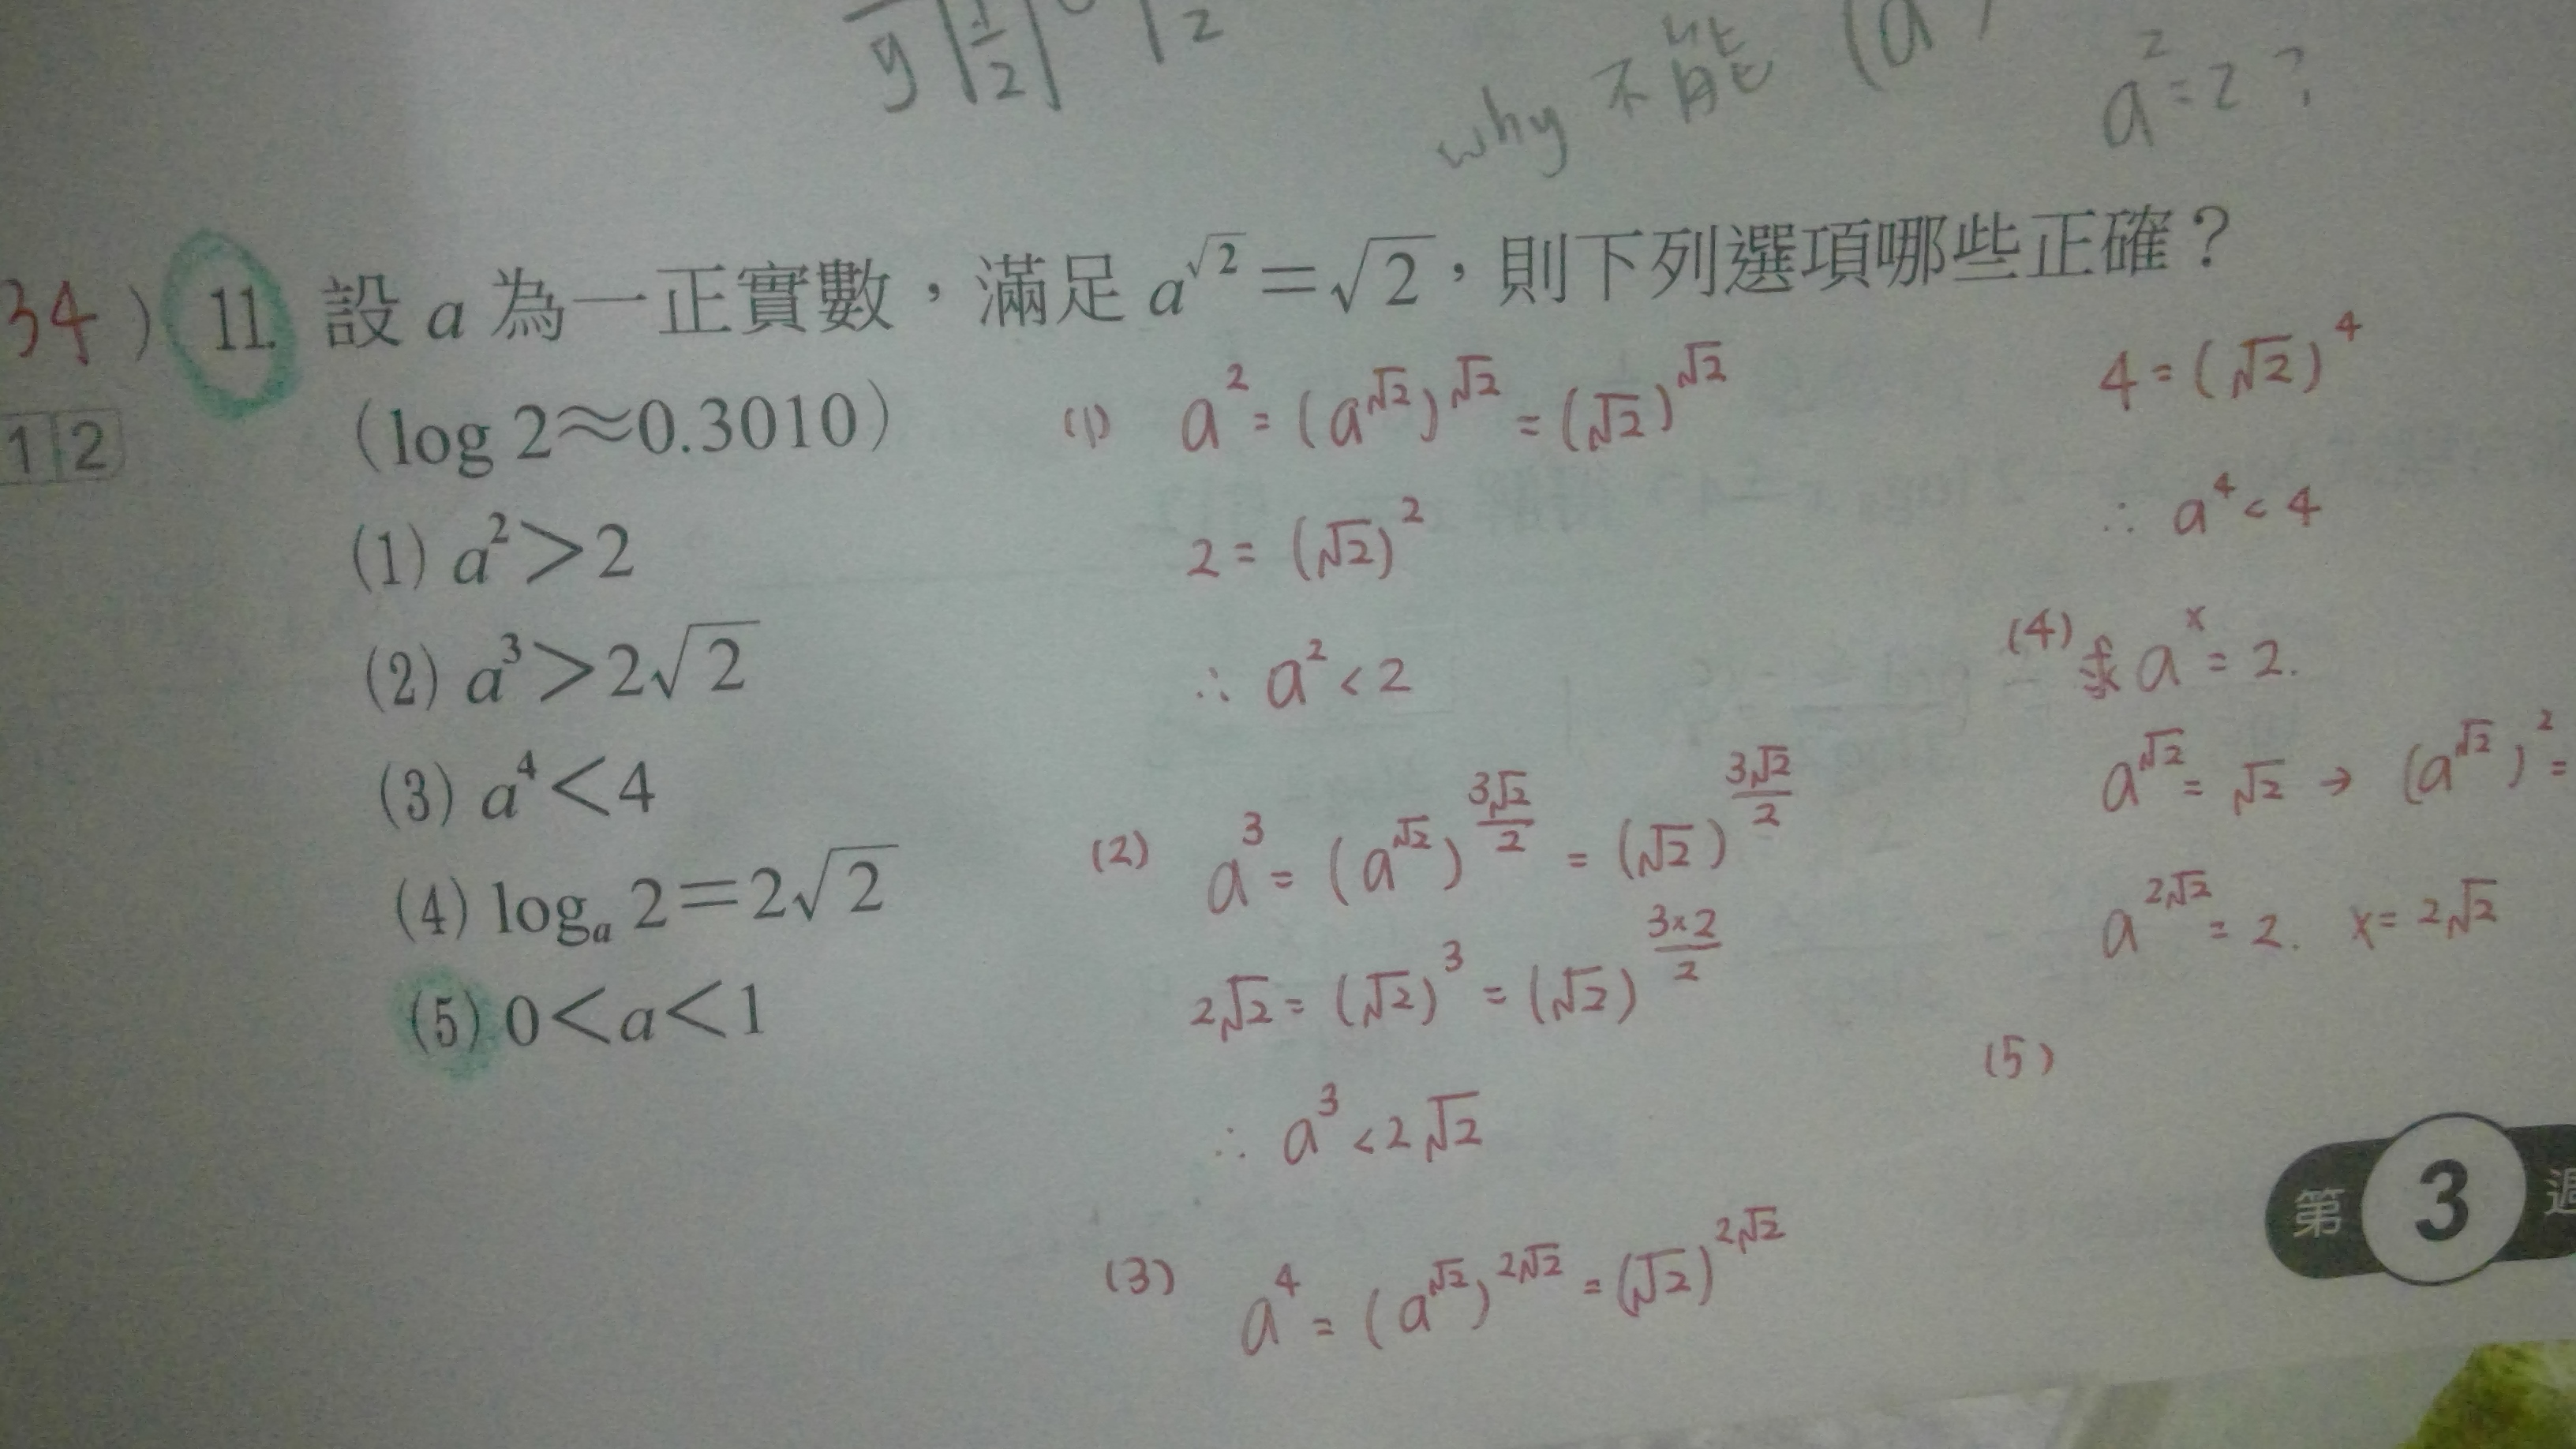 y 1/2 2
why 不能 (a
a²=2?
34) 11. 設 a 為一正實數，滿足 a^√2＝√2，則下列選項哪些正確？
12
(log 2≈0.3010)
(1) a²＞2
(2) a³＞2√2
(3) a⁴＜4
(4) logₐ 2＝2√2
(5) 0＜a＜1
(1) a² = (a^√2)^√2 = (√2)^√2
2 = (√2)²
∴ a² < 2
(2) a³ = (a^√2)^(3√2/2) = (√2)^(3√2/2)
2√2 = (√2)³ = (√2)^(3×2/2)
∴ a³ < 2√2
(3) a⁴ = (a^√2)^(2√2) = (√2)^(2√2)
4 = (√2)⁴
∴ a⁴ < 4
(4) 求 a^x = 2.
a^√2 = √2 → (a^√2)² =
a^(2√2) = 2. x = 2√2
(5)
第 3 週